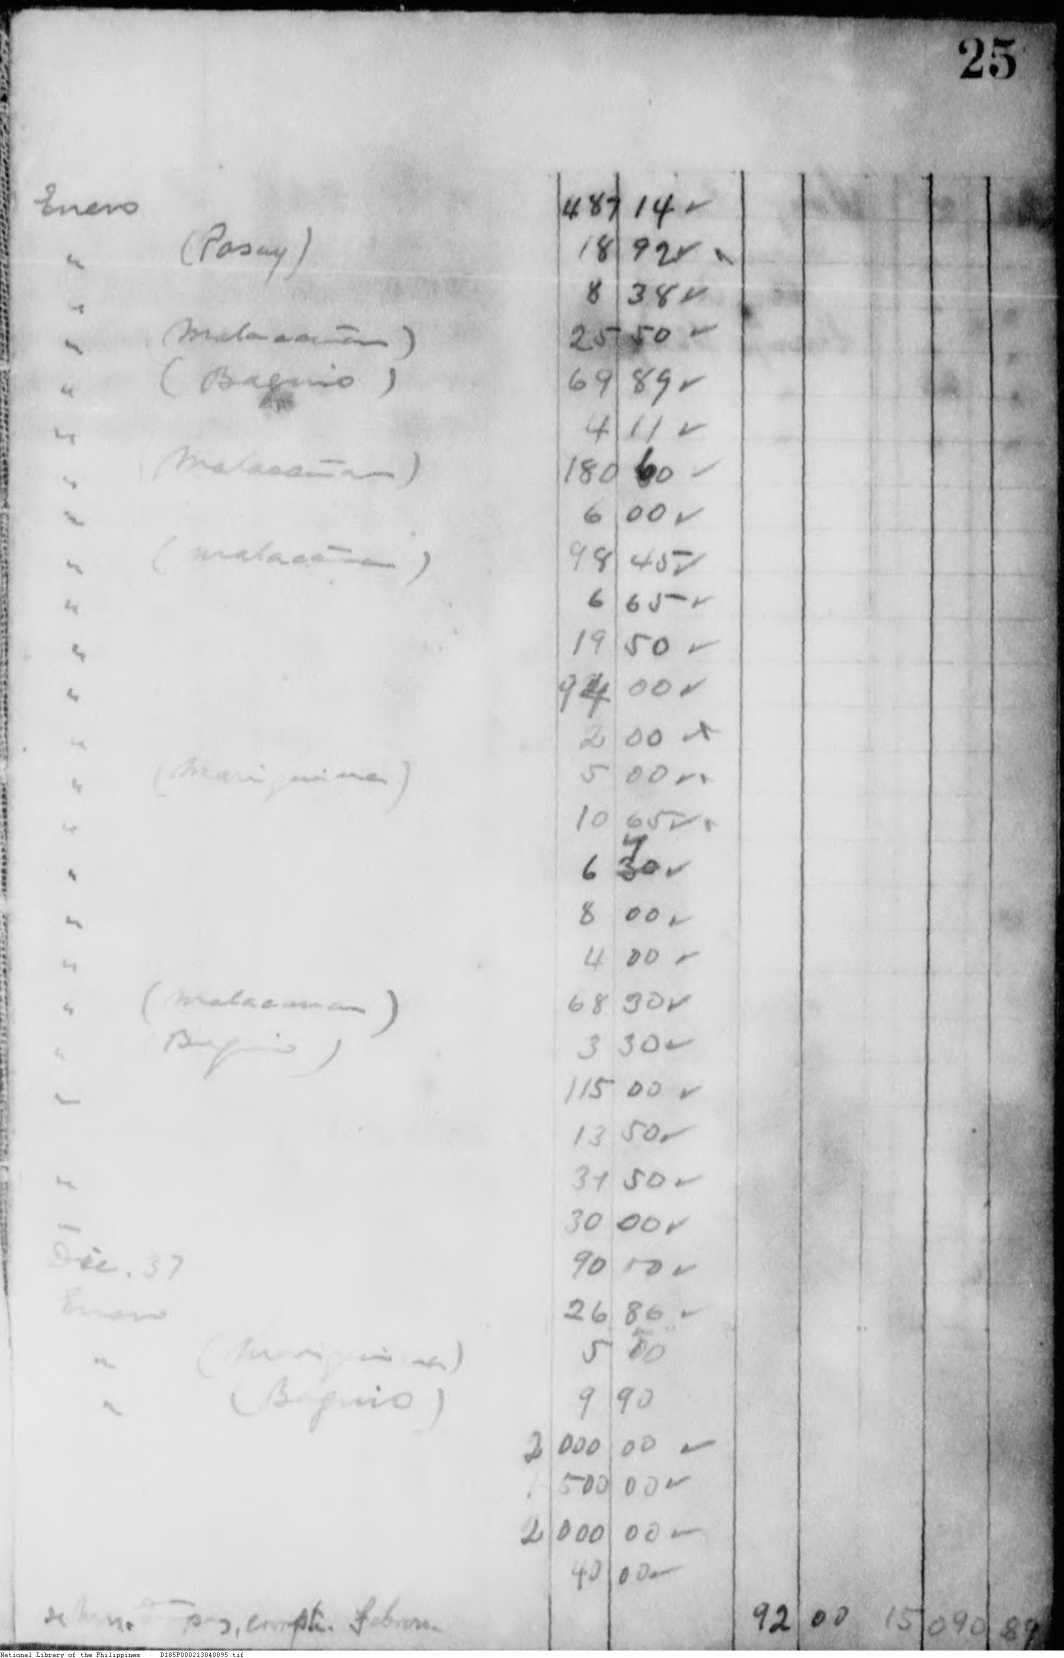 25
Enero 487 14 ✓
" (Pasay) 18 92 ✓
" 8 38 ✓
" Malacañan) 25 50 ✓
" (Baguio) 69 89 ✓
" 4 11 ✓
" (Malacañan) 180 60 ✓
" 6 00 ✓
" (Malacañan) 98 45 ✓
" 6 65 ✓
" 19 50 ✓
" 94 00 ✓
" 2 00 ✓
" (Mariquina) 5 00 ✓
" 10 65 ✓
" 6 ✓
" 8 00 ✓
" 4 00 ✓
" (Malacanan) 68 30 ✓
" Baguio) 3 30 ✓
" 115 00 ✓
13 50 ✓
" 31 50 ✓
" 30 00 ✓
Dic. 37 90 ✓
Enero 26 86 ✓
" (Mariquina) 5
" (Baguio) 9 90
2 000 00 ✓
1 500 00 ✓
2 000 00 ✓
40 00 ✓
92 00 15 090 89
National Library of the Philippines D185P000213840095.tif